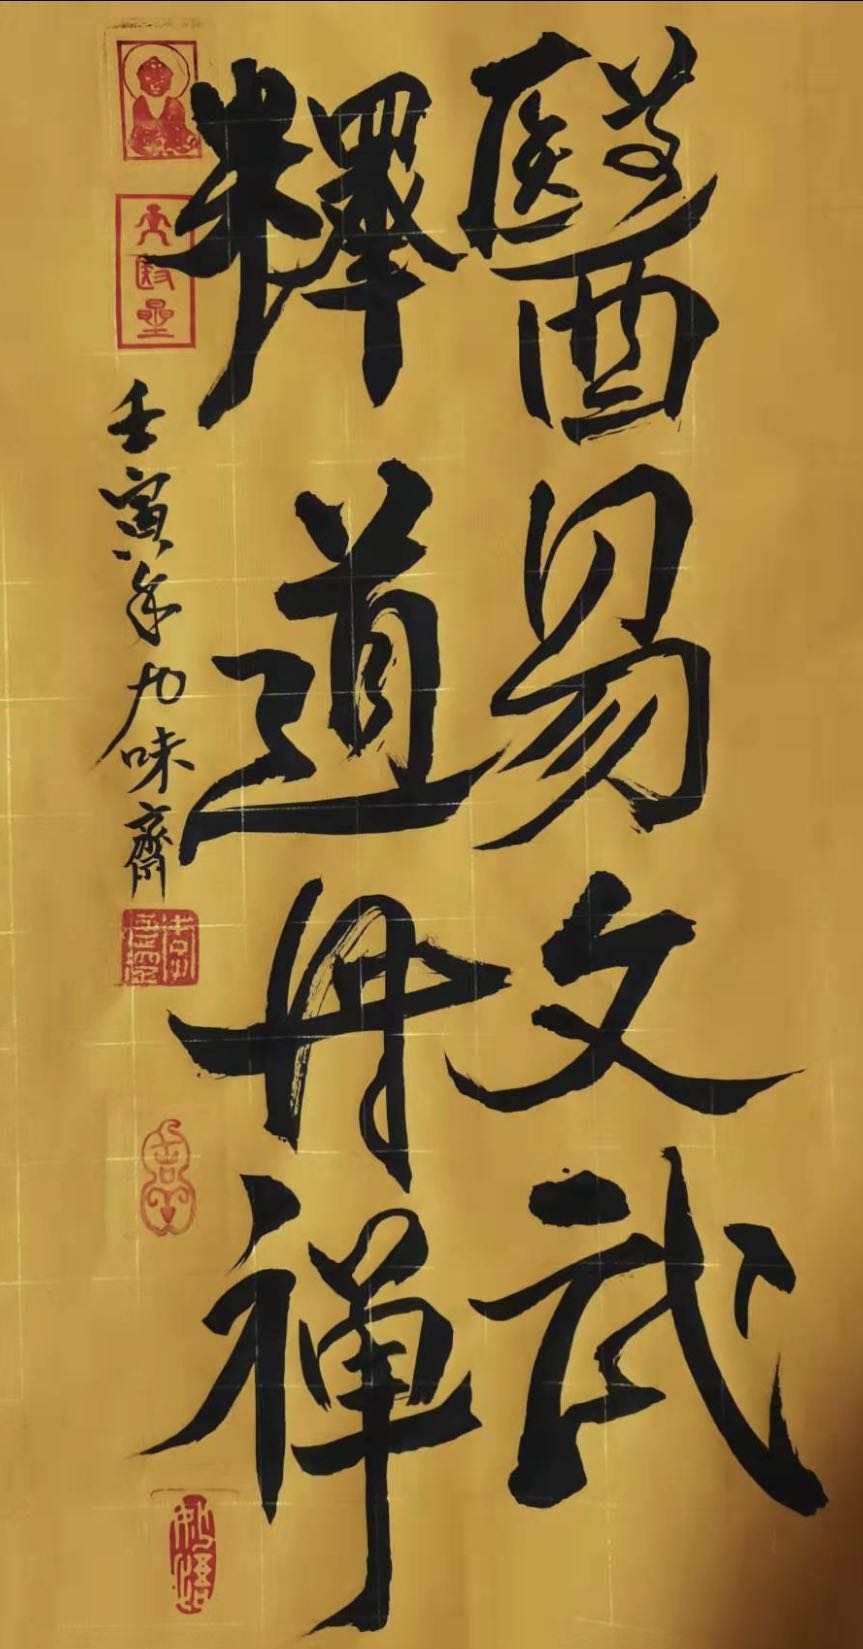 醫易文武
釋道丹禪
壬寅年九味齋
大醫星